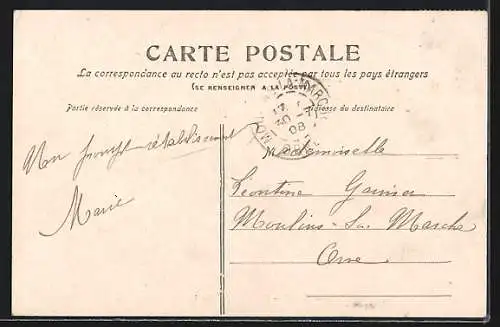 CARTE POSTALE
La correspondance au recto n'est pas acceptée par tous les pays étrangers
(SE RENSEIGNER A LA POSTE)
Partie réservée à la correspondance
Adresse du destinataire
Mon prompt rétablissement
Marie
Mademoiselle
Leontine Garnier
Moulins-La-Marche
Orne
LA-MARCHE
08